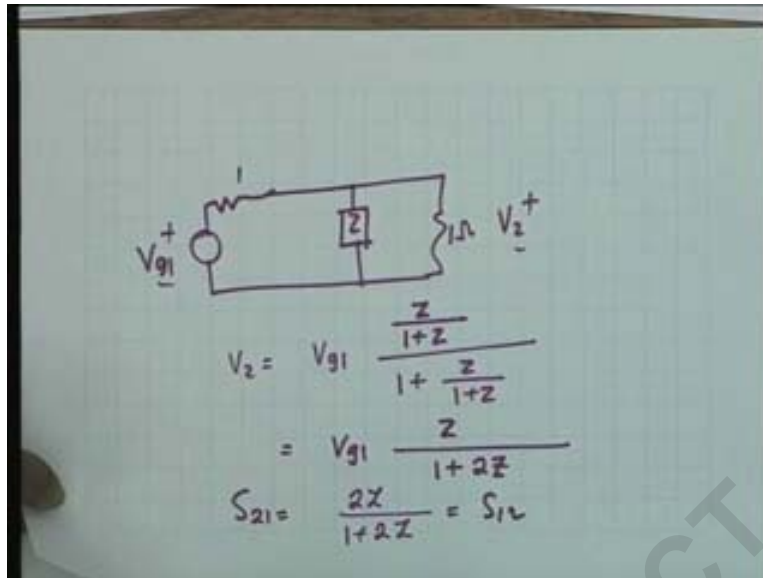 1
Z
+
Vg1
-
1Ω
V2
+
-
V2 = Vg1 \frac{\frac{Z}{1+Z}}{1 + \frac{Z}{1+Z}}
= Vg1 \frac{Z}{1+2Z}
S21 = \frac{2Z}{1+2Z} = S12
CT